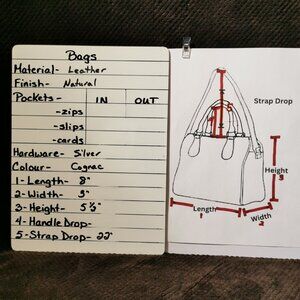 Bags
Material- Leather
Finish- Natural
Pockets- IN OUT
-zips
-slips
-cards
Hardware- Silver
Colour- Cognac
1-Length- 8"
2-Width- 3"
3-Height- 5 ½"
4-Handle Drop-
5-Strap Drop- 22"
Strap Drop
Height
3
Length
1
Width
2